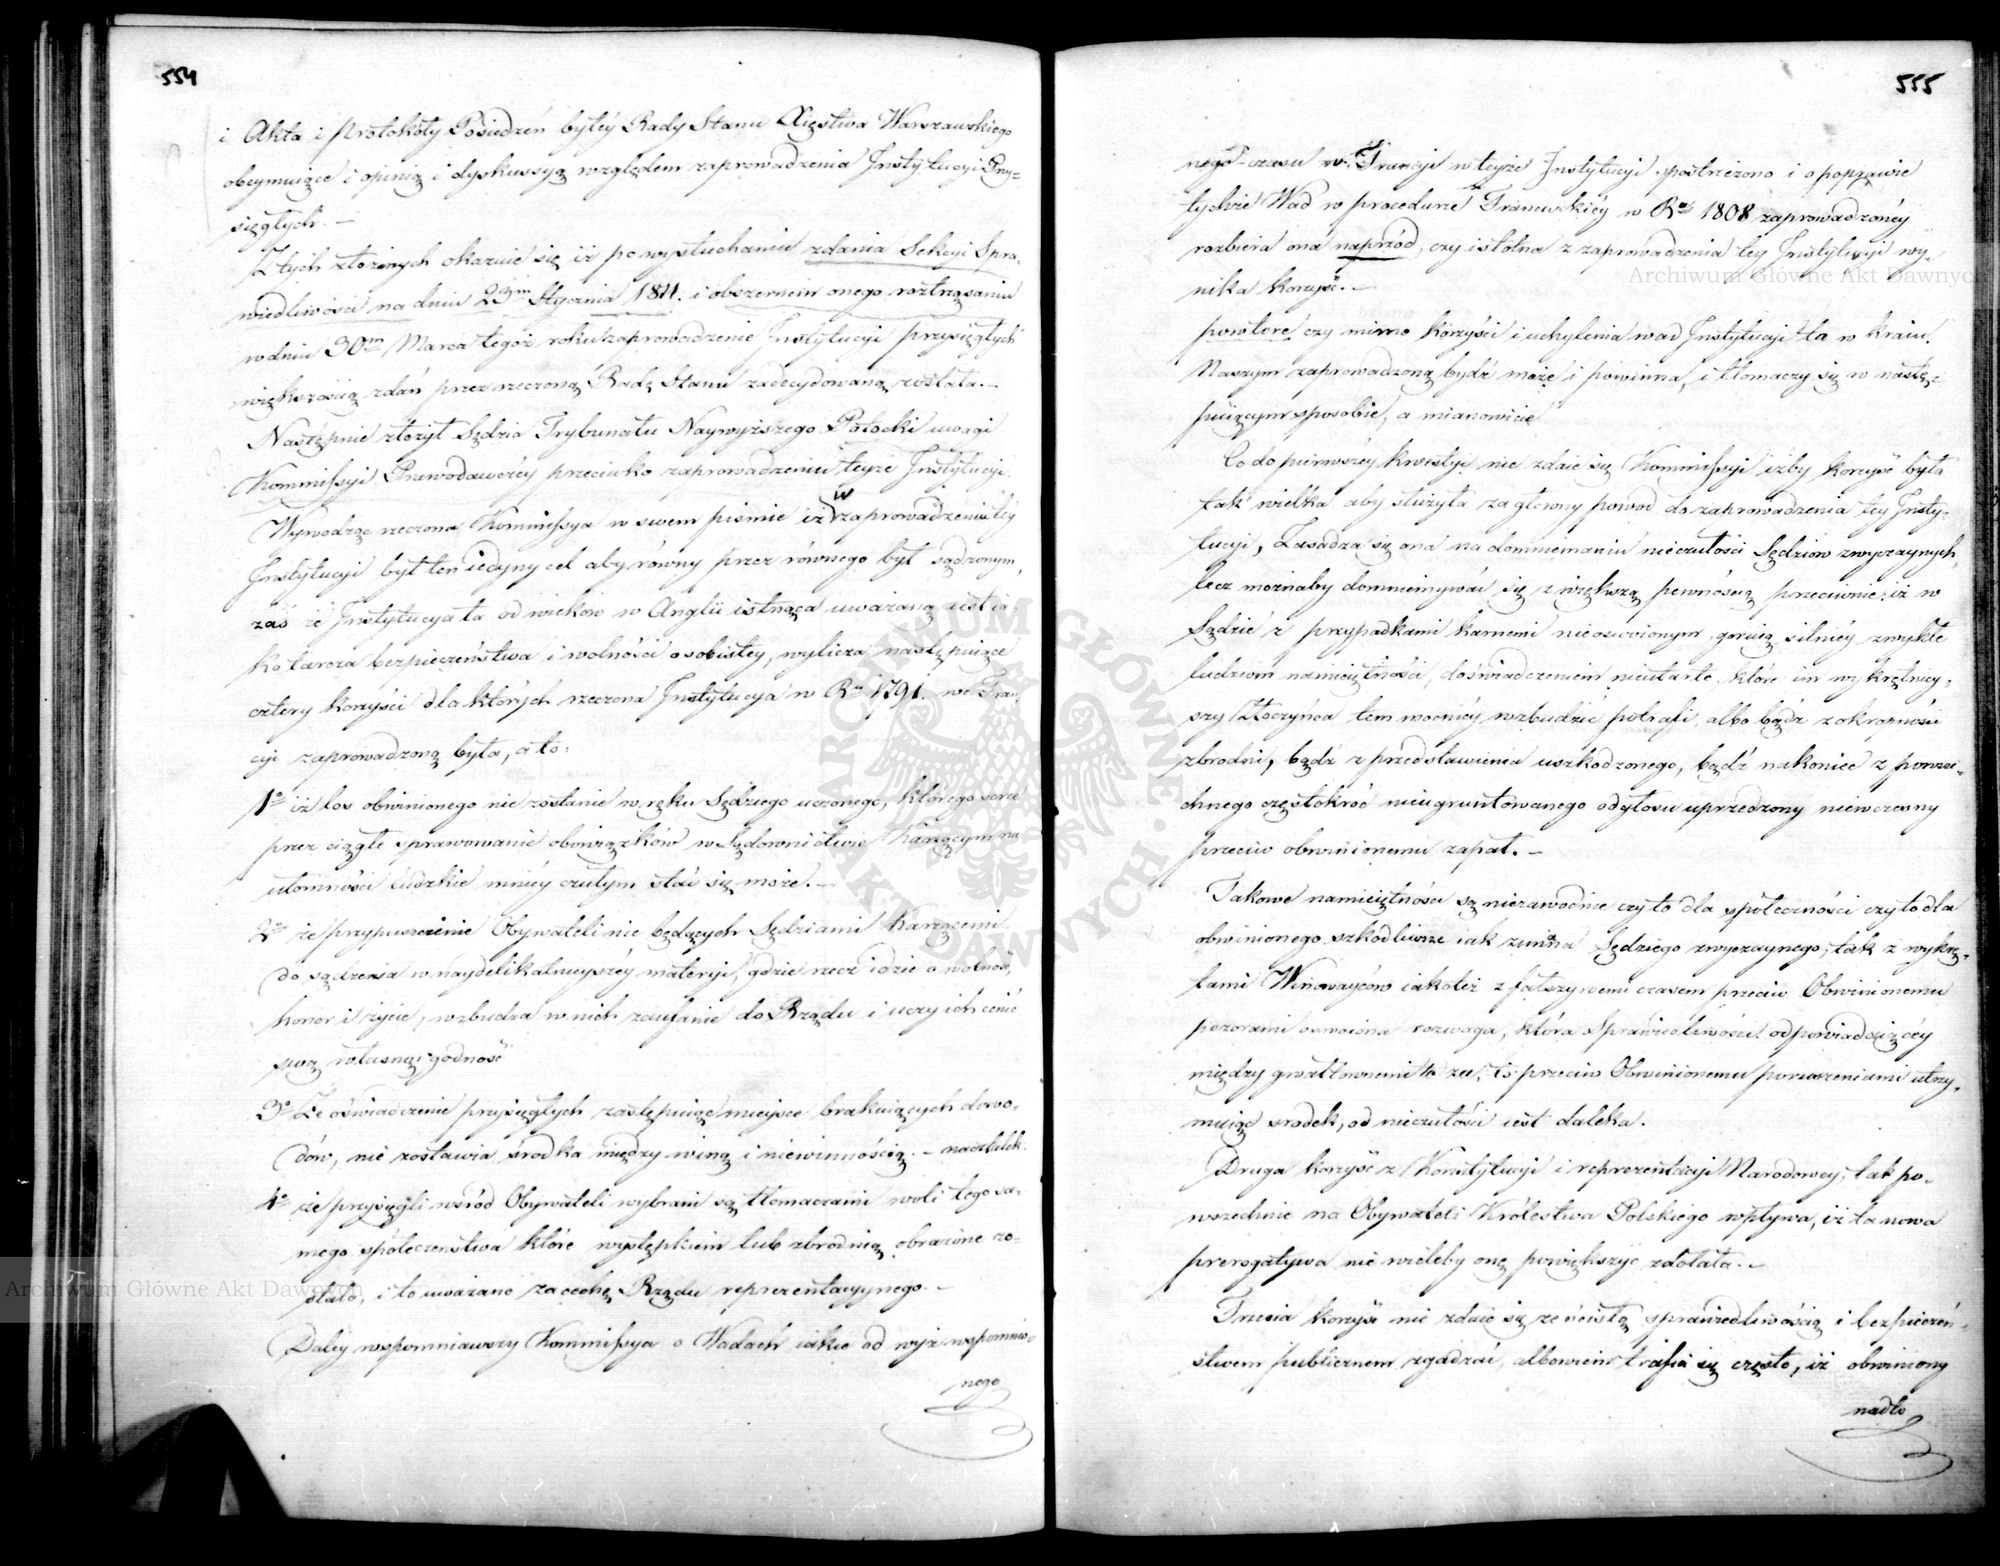 554
i Akta i protokóły Posiedzeń byłéy Rady Stanu Xięstwa Warszawskiego
obeymuiące i opinią i dyskussyą względem zaprowadzenia Instytucyi Przy-
sięgłych. –
Z tych złożonych okazuie się iż po wysłuchaniu zdania Sekcyi Spra-
wiedliwości na dniu 23m Stycznia 1811. i obszernem onego roztrząsaniu
w dniu 30m Marca tegoż roku zaprowadzenie Instytucyi przysięgłych
większością zdań przez rzeczoną Radę Stanu zadecydowaną została. –
Następnie złożył Sędzia Trybunału Naywyższego Potocki uwagi
Kommissyi Prawodawczéy przeciwko zaprowadzeniu teyże Instytucyi.
Wywodząc rzeczona Kommissya w swem piśmie iż w zaprowadzeniu téy
Instytucyi był ten iedyny cel aby równy przez równego był sądzonym,
zaś że Instytucya ta od wieków w Anglii istnąca uważaną iest ia-
ko tarcza bezpieczeństwa i wolności osobistey, wylicza następuiące
cztery korzyści dla których rzeczona Instytucya w Ru 1791. we Fran-
cyi zaprowadzoną była, a to:
1o iż los obwinionego nie zostanie w ręku Sędziego uczonego, którego serce
przez ciągłe sprawowanie obowiązków w Sądownictwie Karzącym na
ułomności ludzkie mniéy czułym stać się może. –
2o że przypuszczenie Obywateli nie będących Sędziami Karzącemi
do sądzenia w naydelikatnieyszéy materyi, gdzie rzecz idzie o wolność,
honor i życie, wzbudza w nich zaufanie do Rządu i uczy ich cenić
swą własną godność
3o Że oświadczenie przysięgłych zastępuiąc mieysce brakuiących dowo-
dów, nie zostawia środka między winą i niewinnością. –
4o że przysięgli wśród Obywateli wybrani są tłomaczami woli tego sa-
mego społeczeństwa które występkiem lub zbrodnią obrażone zo-
stało, i to uważano za cechę Rządu reprezentacyynego. –
Daléy wspomniawszy Kommissya o Wadach iakie od wyż wspomnio-
nego
555
nego czasu w Francyi w teyże Instytucyi postrzeżono i o poprawie
tychże Wad w procedurze Francuskiéy w Ru 1808 zaprowadzonéy
rozbiera ona naprzód, czy istotna z zaprowadzenia tey Instytucyi wy-
nika korzyść. –
powtóre czy mimo korzyści i uchylenia wad Instytucyi ta w kraiu
Naszym zaprowadzoną bydź może i powinna, i tłomaczy się w nastę-
puiącym sposobie, a mianowicie
Co do pierwszéy kwestyi nie zdaie się Kommissyi iżby korzyść była
tak wielka aby służyła za główny powod do zaprowadzenia tey Insty-
tucyi, Zasadza się ona na domniemaniu nieczułości Sędziów zwyczaynych,
lecz możnaby domniemywać się z większą pewnością przeciwnie: iż w
Sądzie z przypadkami karnemi nieoswoionym, goruią silniéy zwykłe
ludziom namiętności, doświadczeniem nieutarte, które im wykrętniey-
szy Złoczyńca tem mocniéy wzbudzić potrafi, albo bądź z okropności
zbrodni, bądź z przedstawienia uszkodzonego, bądź nakoniec z powsze-
chnego częstokroć nieugruntowanego odgłosu uprzedzony niewczesny
przeciw obwinionemu zapał. –
Takowe namiętności są niezawodnie czy to dla społeczności czy to dla
obwinionego szkodliwsze iak zimna Sędziego zwyczaynego, tak z wykrę-
tami Winowayców iakoteż z fałszywemi czasem przeciw Obwinionemu
pozorami oswoiona rozwaga, która Sprawiedliwości odpowiadaiącéy
między gwałtownemi to za, to przeciw Obwinionemu poruszeniami utrzy-
muiąc srodek, od nieczułości iest daleka.
Druga korzyść z Konstytucyi i reprezentacyi Narodowey, tak po-
wszechnie na Obywateli Królestwa Polskiego wpływa, iż ta nowa
prerogatywa nie wieleby onę powiększyć zdołała. –
Trzecia korzyść nie zdaie się ze ścisłą sprawiedliwością i bezpieczeń-
stwem publicznem zgadzać, albowiem trafia się często, iż obwiniony
nadto
Archiwum Główne Akt Dawnych
Archiwum Główne Akt Dawnych
ARCHIWUM GŁÓWNE AKT DAWNYCH